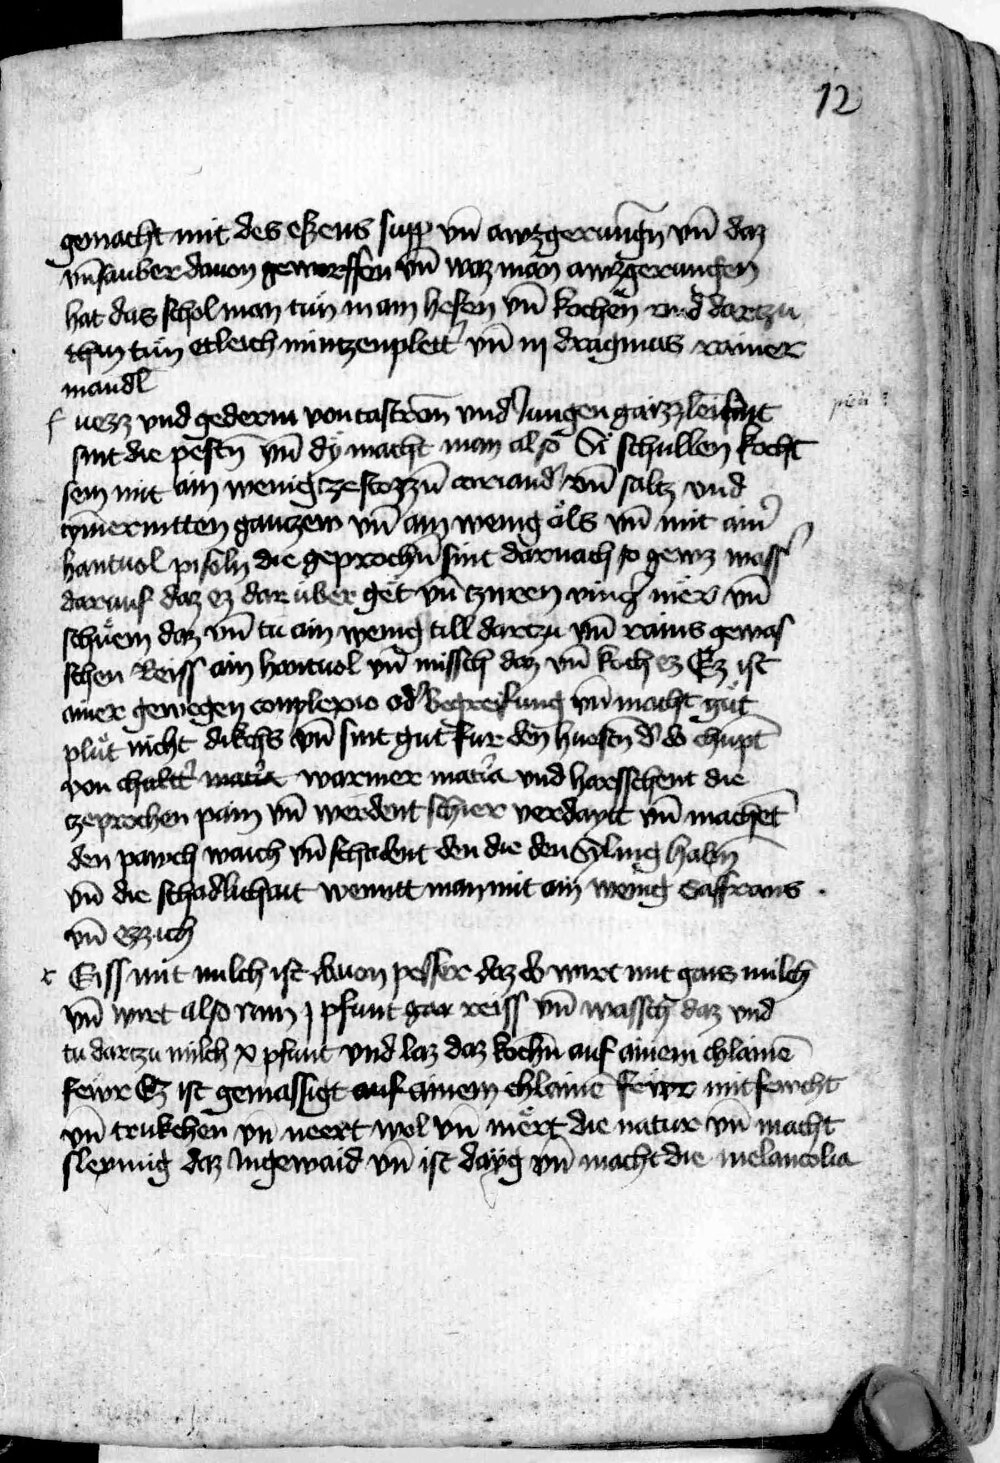 12
gemacht mit des eßens supp vn̄ awzgerungn̄ vn̄ daz
vn̄sauber dauon geworffen vn̄ waz man awzgerungen
hat das schol man tün in ain hefen vn̄ kochen vnd dartzu
tün etleich mintzenplett' vn̄ iij dragmas rainer
mandl
f uezz vnd gederm von castron̄ vnd Jungen gaizzlein
sint die pestn̄ vn̄ dÿ macht man also Si schullen kocht
sein mit ain wenig zestozzn̄ corriand' vn̄ saltz vnd
cymerrintten gantzew vn̄ ain wenig öls vn̄ mit ain'
hantuol pisoln die geprochn̄ sint darnach so gewz wass'
darauf daz ez dar über gët vn̄ tzwen ving' mër vn̄
schüem daz vn̄ tu ain wenig till dartzu vn̄ rains gewas
schen Reiss ain hantuol vn̄ missch daz vn̄ koch ez Ez ist
ainer gewegen conplexio od' begreifung vn̄ macht güt
plüt nicht dikchs vn̄ sint gut für den huestn̄ d' do chupt̄
von chaltt' warmer mat'ia vnd haesschent die
zeprochen pain vn̄ werdent schier verdaytt vn̄ machet̄
den pawch waich vn̄ schadent den die den Syling habn̄
vn̄ die schadlichait wenntt man mit ain wenig Saffrans
vn̄ ezzich
r Eiss mit milch ist dauon pesser daz do wirt mit gais milch
vn̄ wirt also Nim j pfunt gar reiss vn̄ wassch daz vnd
tu dartzu milch x pfunt vnd laz daz kochn̄ auf ainem chlainē
fewr Ez ist gemassigt auf ainem chlainē fewr mit fewcht
vn̄ trukchen vn̄ neert wol vn̄ mërt die natur vn̄ macht
sleymig daz Ingewaid vn̄ ist däyg vn̄ macht die melancolia